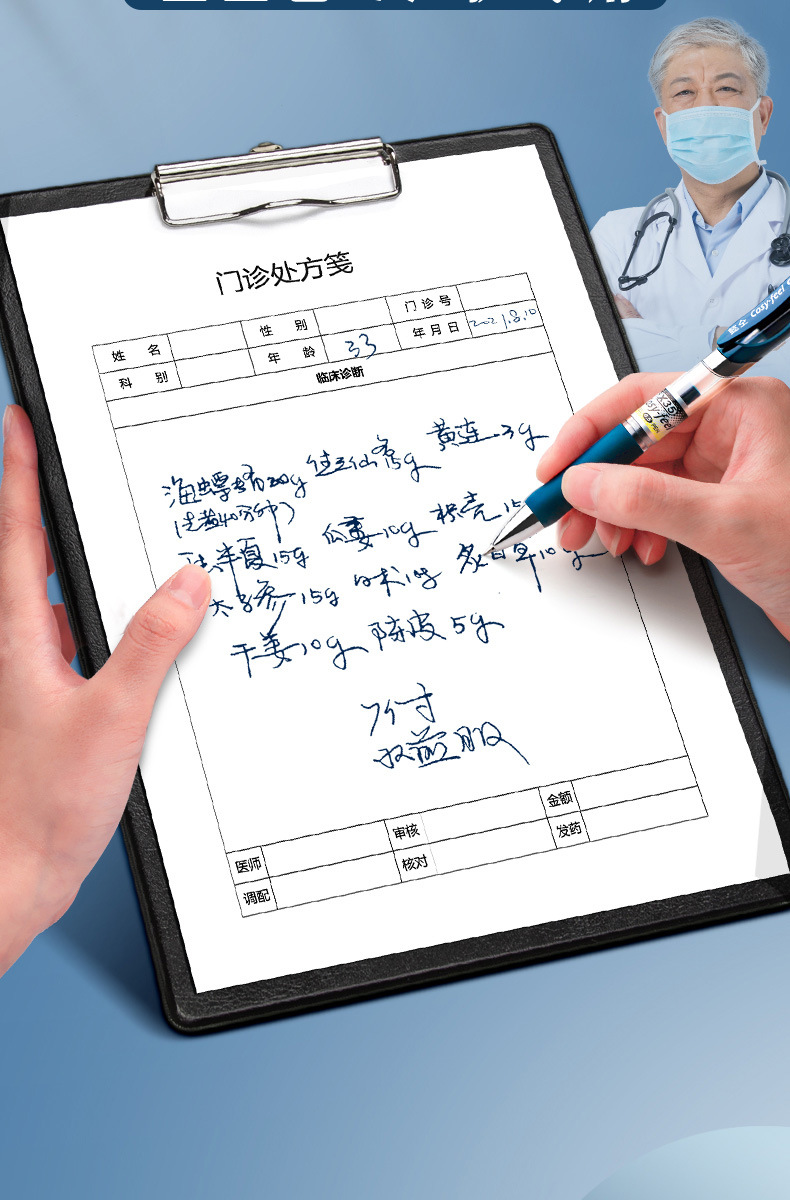 门诊处方笺
姓 名 性 别 门 诊 号
科 别 年 龄 33 年 月 日 2021.8.10
临床诊断
海螵蛸20g 15g 黄连3g
(先煎40分钟)
法半夏15g 瓜蒌10g 枳壳15
太子参15g 白术10g 炙甘草10g
干姜10g 陈皮5g
7付
水煎服
医师 审核 金额
调配 核对 发药
Cosy-feel
X35